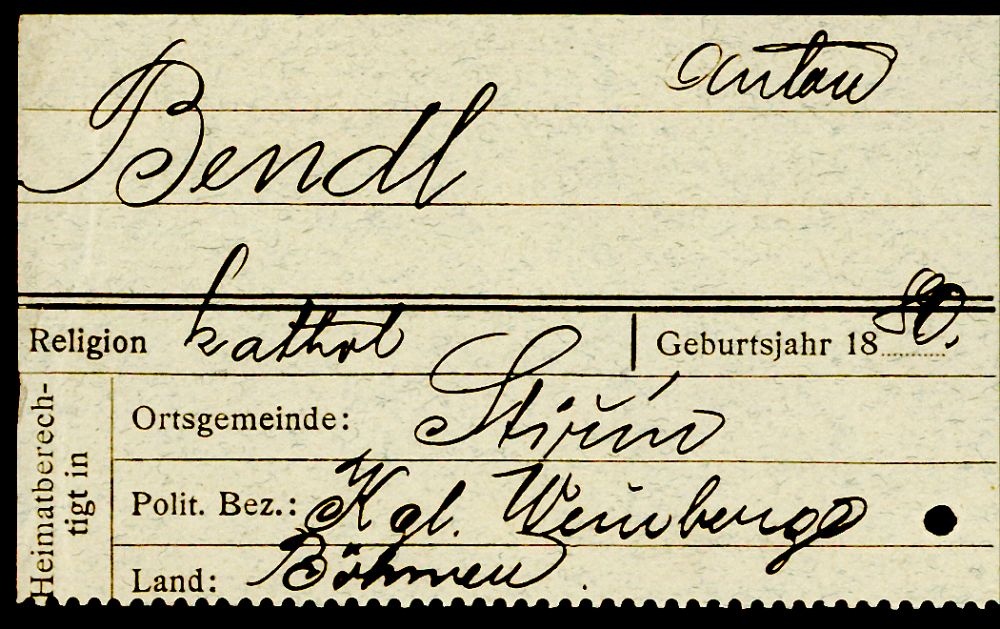 Anton
Bendl
Religion kathol Geburtsjahr 1880.
Heimatberech-
tigt in
Ortsgemeinde: Štiřín
Polit. Bez.: Kgl. Weinberge
Land: Böhmen